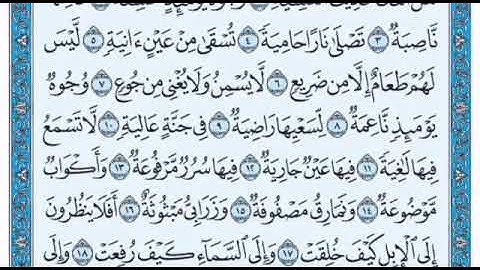 نَّاصِبَةٌ ٣ تَصْلَىٰ نَارًا حَامِيَةً ٤ تُسْقَىٰ مِنْ عَيْنٍ ءَانِيَةٍ ٥ لَّيْسَ
لَهُمْ طَعَامٌ إِلَّا مِن ضَرِيعٍ ٦ لَّا يُسْمِنُ وَلَا يُغْنِي مِن جُوعٍ ٧ وُجُوهٌ
يَوْمَئِذٍ نَّاعِمَةٌ ٨ لِّسَعْيِهَا رَاضِيَةٌ ٩ فِي جَنَّةٍ عَالِيَةٍ ١٠ لَّا تَسْمَعُ
فِيهَا لَٰغِيَةً ١١ فِيهَا عَيْنٌ جَارِيَةٌ ١٢ فِيهَا سُرُرٌ مَّرْفُوعَةٌ ١٣ وَأَكْوَابٌ
مَّوْضُوعَةٌ ١٤ وَنَمَارِقُ مَصْفُوفَةٌ ١٥ وَزَرَابِيُّ مَبْثُوثَةٌ ١٦ أَفَلَا يَنظُرُونَ
إِلَى ٱلْإِبِلِ كَيْفَ خُلِقَتْ ١٧ وَإِلَى ٱلسَّمَآءِ كَيْفَ رُفِعَتْ ١٨ وَإِلَى